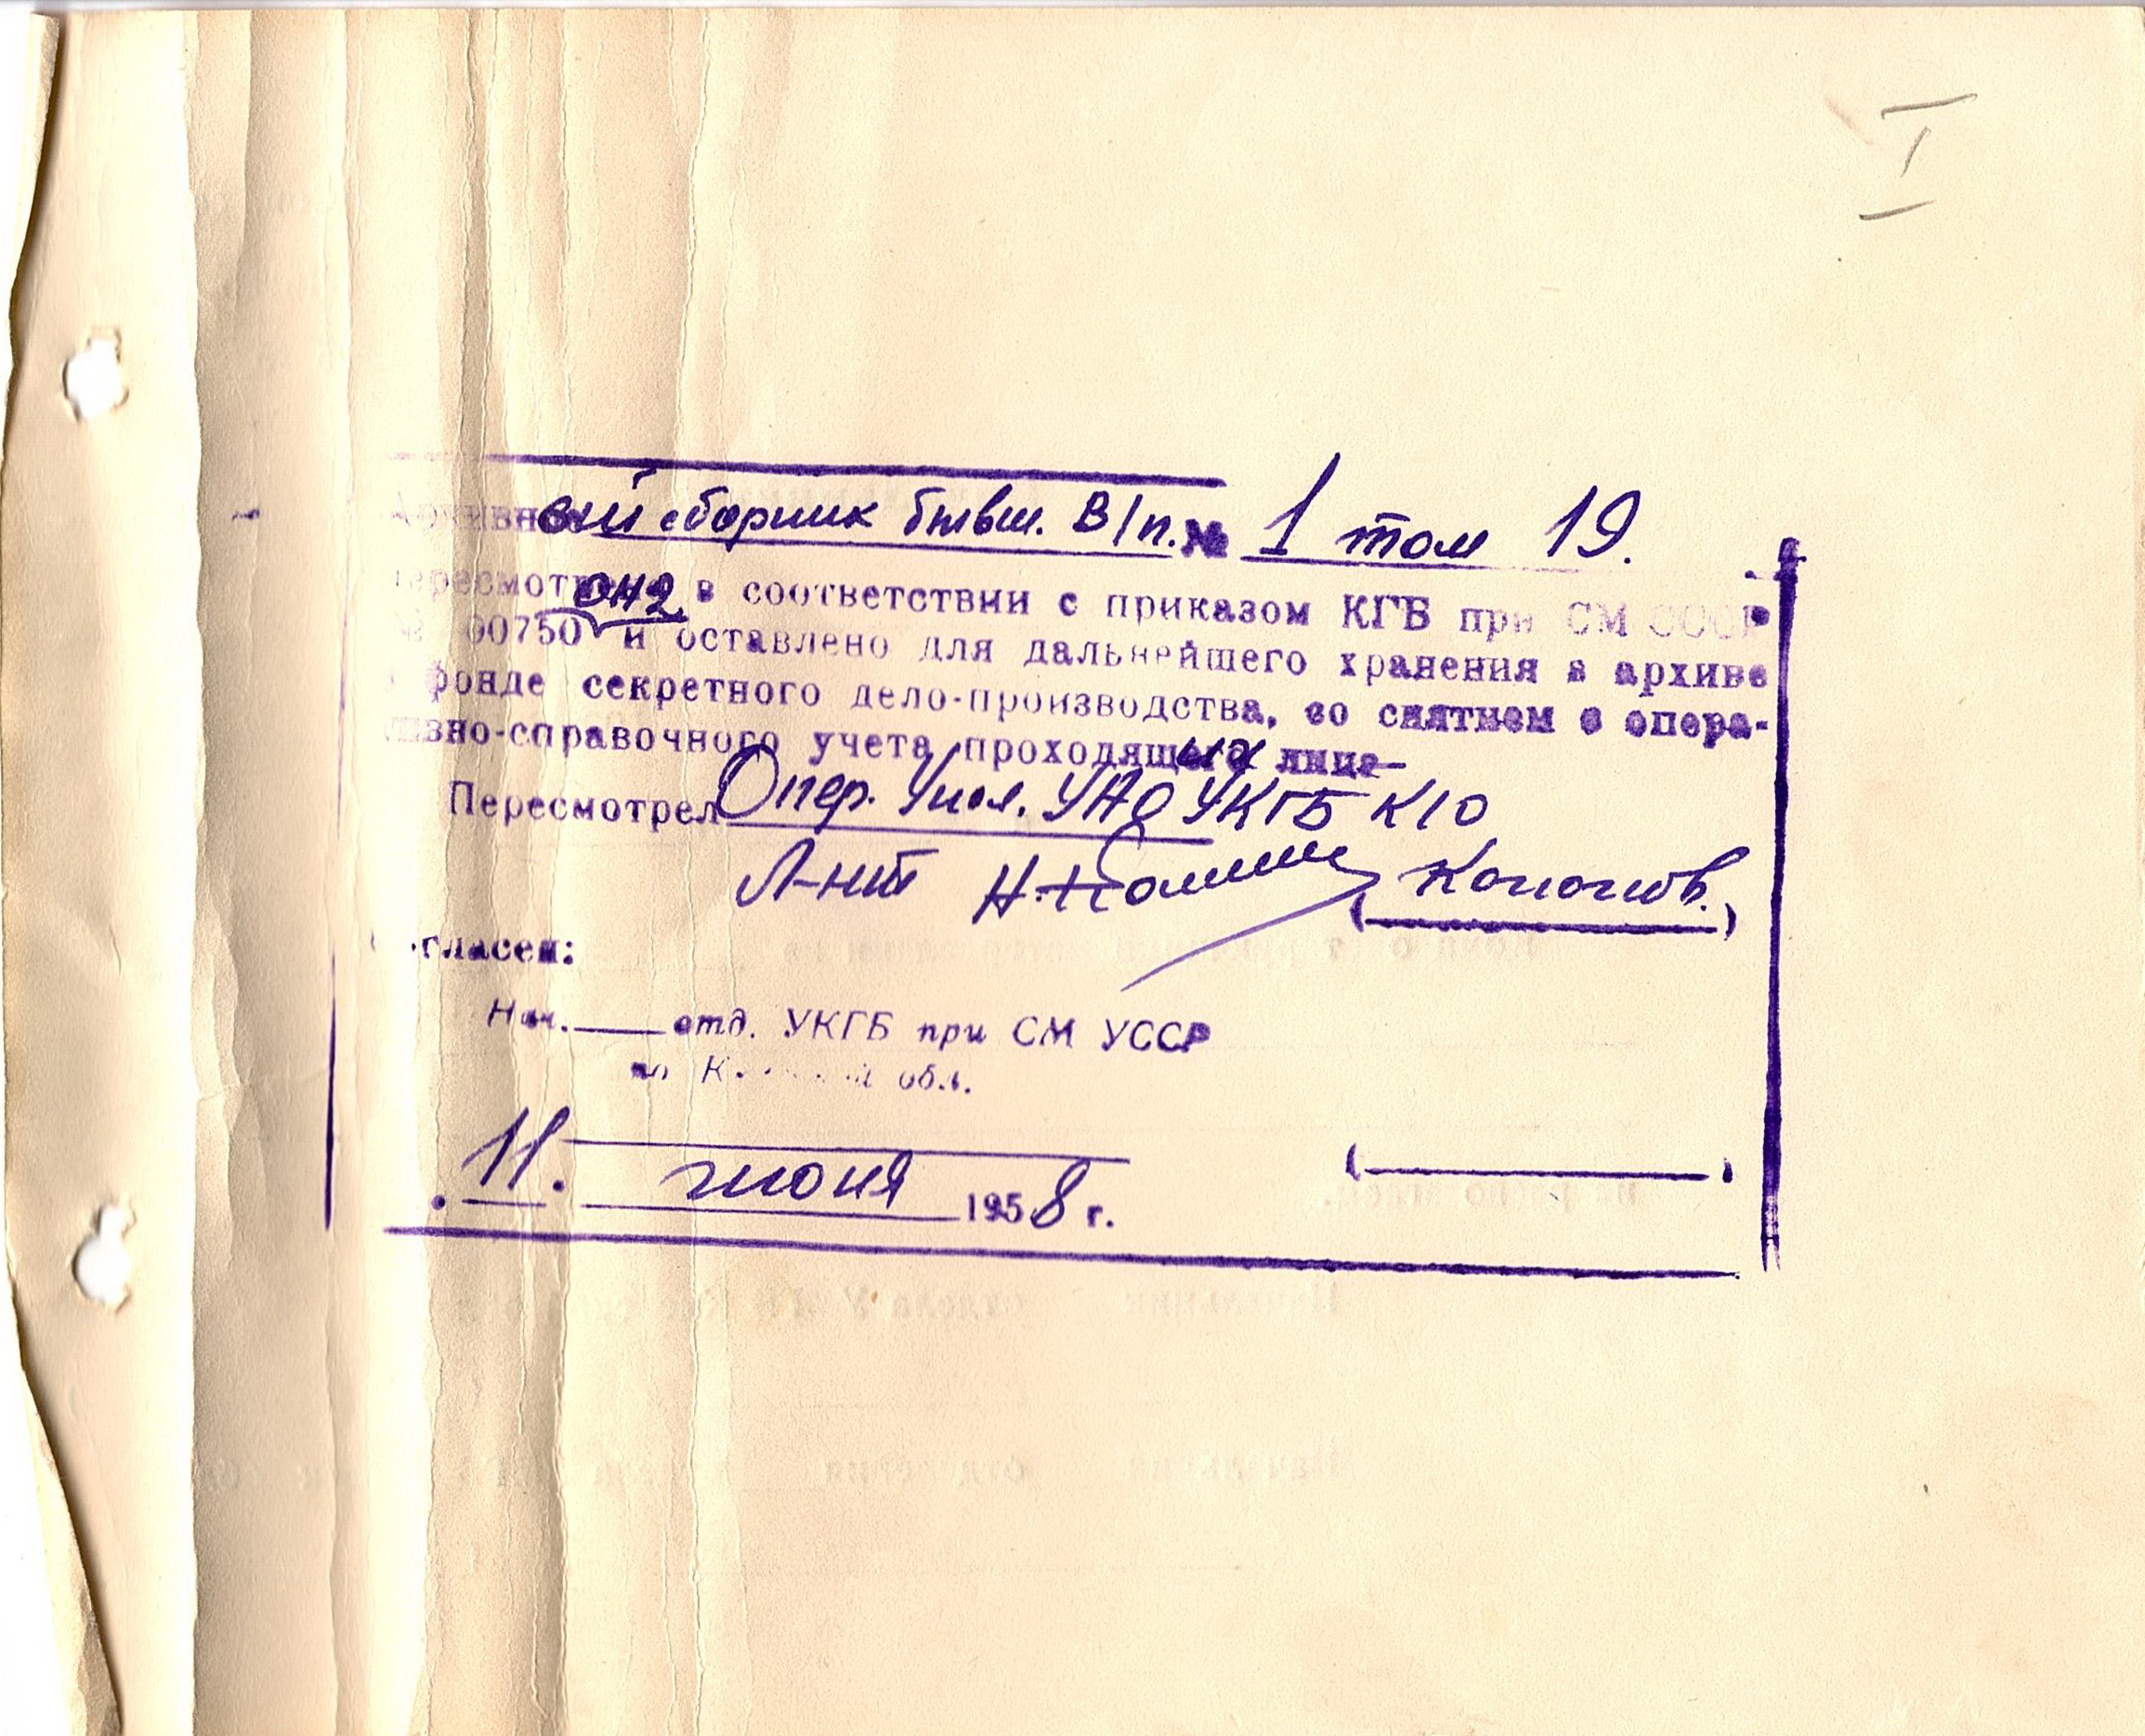 I
Архивный сборник бывш. В/п. № 1 том 19.
пересмотрен в соответствии с приказом КГБ при СМ СССР
№ 00750 и оставлено для дальнейшего хранения в архиве
фонде секретного дело-производства, со снятием с опера-
тивно-справочного учета проходящих лица
Пересмотрел Опер. Упол. УАО УКГБ КЮ
Л-нт (Кононов.)
гласен:
Нач. отд. УКГБ при СМ УССР
по К обл.
( )
. 11. июня 1958 г.